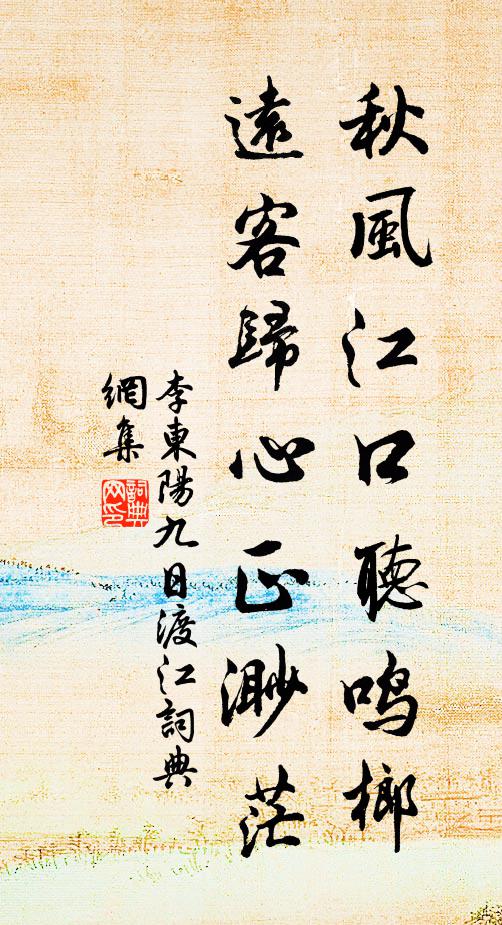 秋風江口聽鳴榔
遠客歸心正渺茫
李東陽九日渡江詞典
網集
詞典
网印